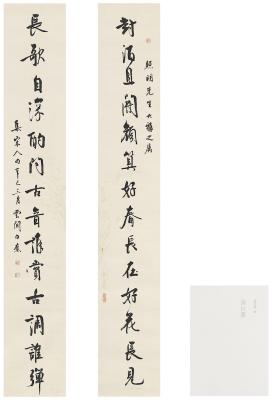 對酒且開顏算好春長在好花長見
明先生大雅之屬
長歌自深酌問古音誰賞古調誰彈
集宋人句辛巳三月雲間白蕉